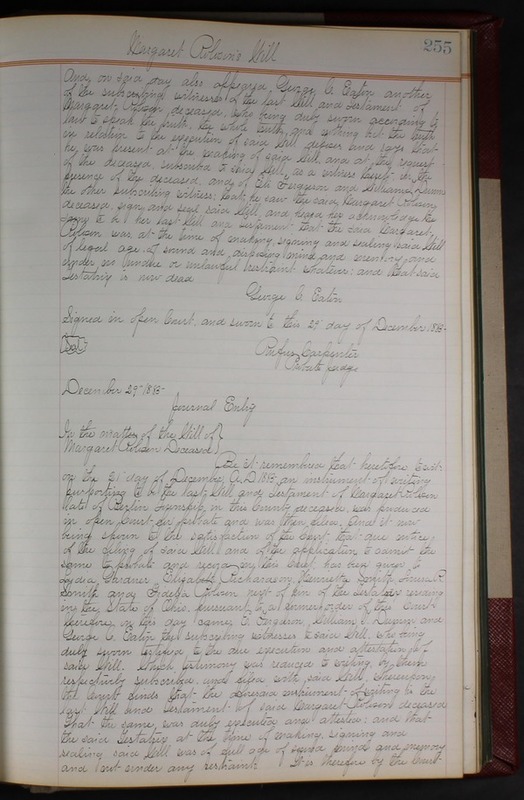 Margaret Will
255
And, on said day also appeared, George C. Eaton another
of the subscribing witnesses of the last Will and Testament of
Margaret deceased, who being duly sworn according to
law to speak the truth, the whole truth, and nothing but the truth
in relation to the execution of said Will deposes and says that
he, was present at the making of said Will, and at the request
of the deceased, subscribed to said Will, as a witness thereto in the
presence of the deceased, and of Ferguson and William
the other subscribing witness; that, he saw the said Margaret
deceased sign, and seal said Will, and heard her acknowledge the
same to be her last Will and Testament that the said Margaret,
was at the time of making, signing and sealing said Will
of legal age, of mind and disposing mind and memory, and
under no undue or unlawful restraint whatever: and that said
Testatrix is now dead
George C. Eaton
Signed in open Court, and sworn to this 29 day of December 1883-
Seal
Rufus Carpenter
Probate Judge
December 29th 1883-
Journal Entry
In the matter of the Will of
Margaret Deceased
Be it remembered that heretofore to wit-
on the day of December, A.D. 1883, an instrument of writing
purporting to be the last Will and Testament of Margaret
late of Berlin Township, in this County deceased, was produced
in open Court for probate and was then filed. And it now
being shown to the satisfaction of the Court, that due notice
of the filing of said Will and of the application to admit the
same to probate and record in this Court, has been given to
Lydia Gardner Elizabeth Richardson, Henrietta Smith,
Smith and next of kin of the testatrix residing
in the State of Ohio, pursuant to a former order of this Court
therefore, on this day came, E. Ferguson, William
George C. Eaton the subscribing witnesses to said Will, who being
duly sworn testified to the due execution and attestation of
said Will. Which testimony was reduced to writing, by them
respectively subscribed, and filed with said Will, whereupon
the Court finds that the aforesaid instrument of writing is the
last Will and Testament of said Margaret deceased
that the same was duly executed and attested: and that
the said Testatrix at the time of making, signing and
sealing said Will was of full age of sound mind and memory
and not under any restraint. It is therefore by the Court